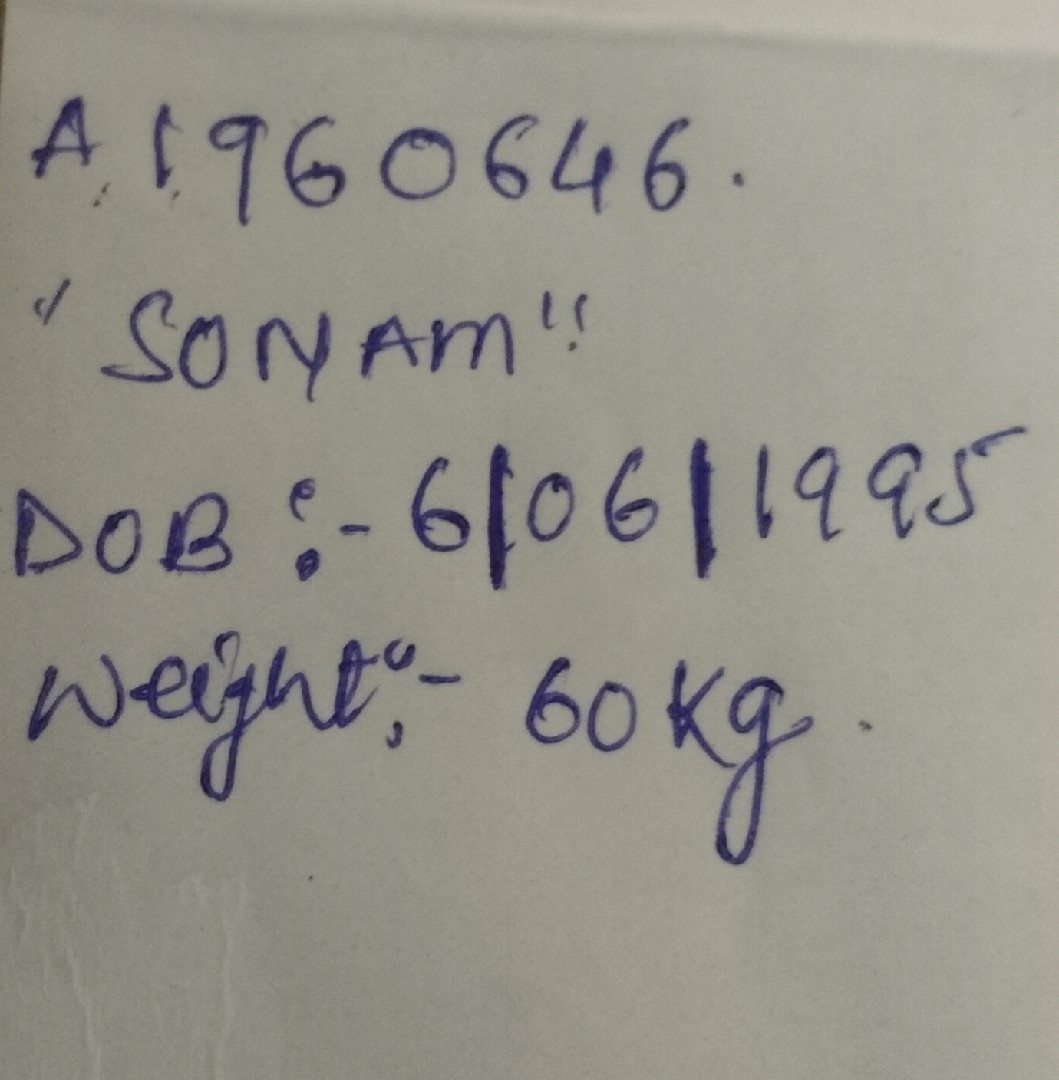 A1960646.
"SONAM"
DOB :- 6/06/1995
Weight :- 60 Kg.